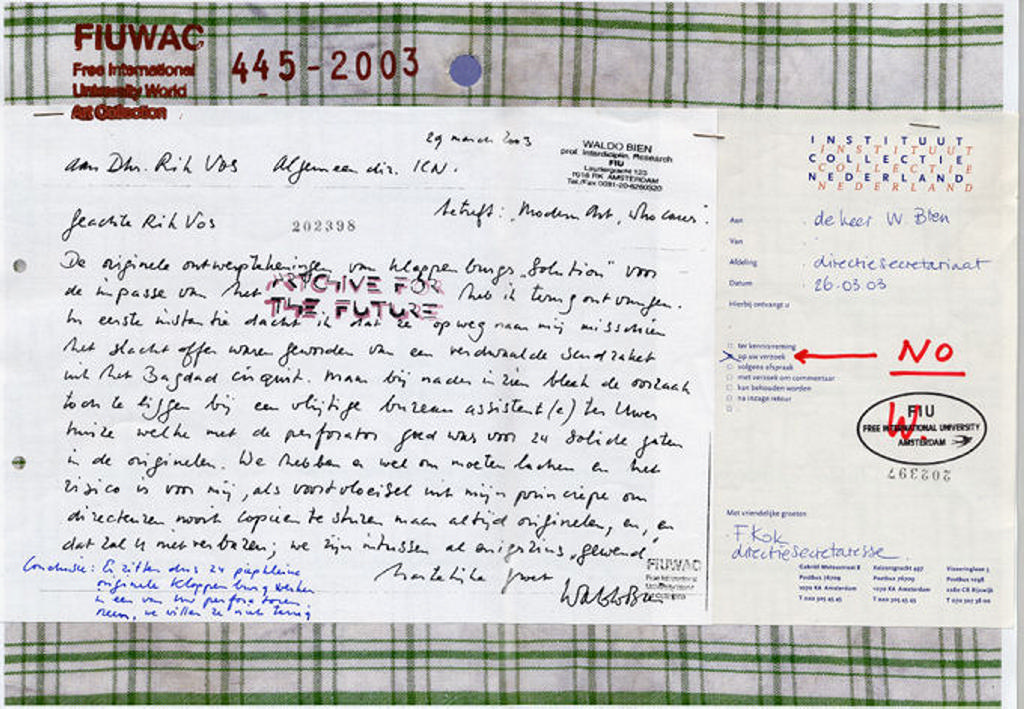 FIUWAC
Free International
University World
Art Collection
445-2003
29 march 2003
WALDO BIEN
prof. Interdisciplin. Research
FIU
Lauriergracht 123
1016 RK AMSTERDAM
Tel./Fax 0031-20-6260520
aan Dhr. Rik Vos Algemeen dir. ICN.
betreft: "Modern Art, who cares".
Geachte Rik Vos
202398
De originele ontwerptekeningen van Kloppenburgs "Solution" voor
de impasse van het ARTCHIVE FOR THE FUTURE heb ik terug ontvangen.
In eerste instantie dacht ik dat ze op weg naar mij misschien
het slachtoffer waren geworden van een verdwaalde
uit het Bagdad circuit. Maar bij nader inzien bleek de oorzaak
toch te liggen bij een vlijtige bureau assistent(e) ten Uwen
huize welke met de perforator goed was voor 24 solide gaten
in de originelen. We hebben er wel om moeten lachen en het
risico is voor mij, als voortvloeisel uit mijn principe om
directeuren nooit copieën te sturen maar altijd originelen, en, en
dat zal U niet verbazen; we zijn intussen al enigszins "gewend"
Hartelijke groet
Waldo Bien
FIUWAC
Free International
University World
Art Collection
Conclusie: Er zitten dus 24 piepkleine
originele Kloppenburg werken
in een van Uw perforatoren.
neen, we willen ze niet terug
INSTITUUT
INSTITUUT
COLLECTIE
COLLECTIE
NEDERLAND
NEDERLAND
Aan de heer W. Bien
Van
Afdeling directiesecretariaat
Datum 26-03-03
Hierbij ontvangt u
ter kennisneming
op uw verzoek
NO
volgens afspraak
met verzoek om commentaar
kan behouden worden
na inzage retour
W.
FIU
FREE INTERNATIONAL UNIVERSITY
AMSTERDAM
202397
Met vriendelijke groeten
F Kok
directiesecretaresse.
Gabriël Metsustraat 8
Postbus 76709
1070 KA Amsterdam
T 020 305 45 45
Keizersgracht 497
Postbus 76709
1070 KA Amsterdam
T 020 305 45 45
Visseringlaan 3
Postbus 1098
2280 CB Rijswijk
T 070 307 38 00